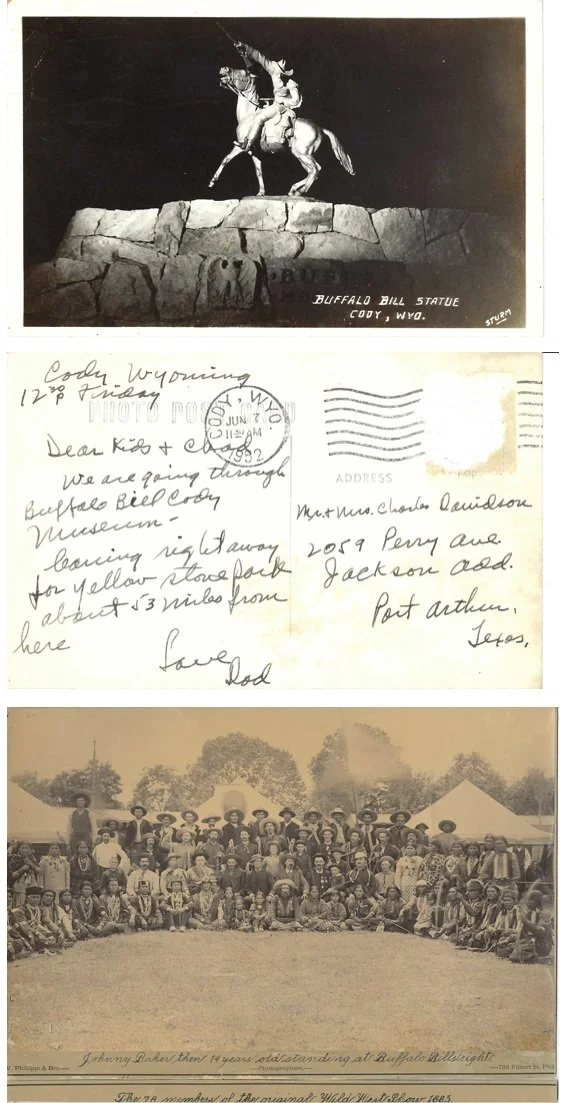 BUFFALO BILL STATUE
CODY, WYO.
STURM
Cody Wyoming
12³⁰ P Friday
PHOTO POST CARD
CODY, WYO.
JUN 7
11 AM
1952
ADDRESS
Dear Kids +
We are going through
Buffalo Bill Cody
Museum-
leaving right away
for yellow stone park
about 53 miles from
here
Love
Dad
Mr. + Mrs. Charles Davidson
2059 Perry Ave.
Jackson Add.
Port Arthur,
Texas.
Johnny Baker then 14 years old standing at Buffalo Bills right
. Philippi & Bro.
Photographers,
709 Filbert St. Phil
The 78 members of the original Wild West Show 1883.